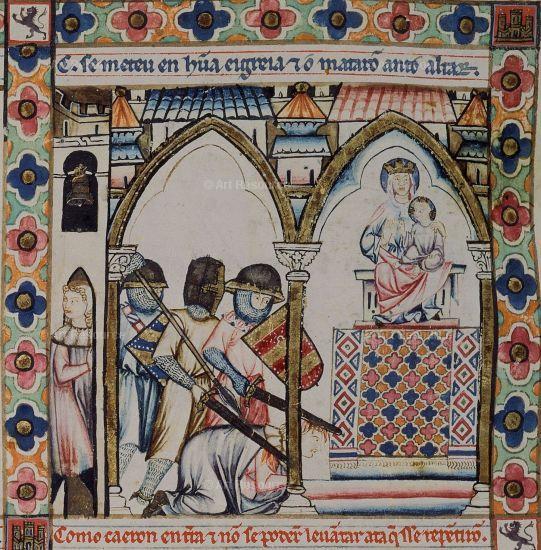 E. se meteu en hũa eigreia ⁊ o mataron ante o altar.
© Art Resource
Como caeron en terra ⁊ nõ se poderõ leuãtar ata q̃ sse repẽtirõ.